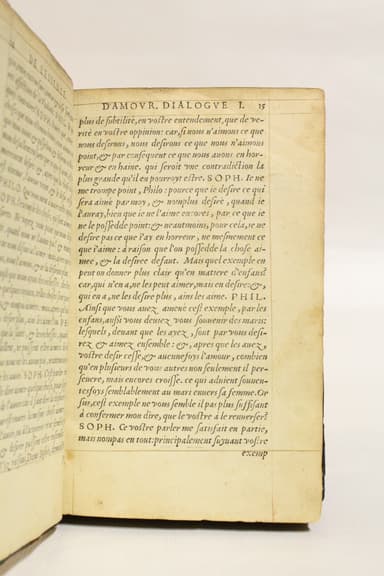 DE L'ESSENCE
D'AMOVR, DIALOGVE I. 15
plus de subtilité, en vostre entendement, que de ve-
rité en vostre oppinion: car, si nous n'aimons ce que
nous desirons, nous desirons ce que nous n'aimons
point, & par consequent ce que nous auons en hor-
reur & en haine. qui seroit vne contradiction la
plus grande qu'il en pourroyt estre. SOPH. Ie ne
me trompe point, Philo: pource que ie desire ce qui
sera aimé par moy, & nonplus desiré, quand ie
l'auray, bien que ie ne l'aime encores, par ce que ie
ne le possedde point: & neantmoins, pour cela, ie ne
desire pas ce que i'ay en horreur, ne mesmement ce
que i'aime: à raison que l'on possedde la chose ai-
mee, & la desiree defaut. Mais quel exemple en
peut on donner plus clair qu'en matiere d'enfans?
car, qui n'en a, ne les peut aimer, mais en desire: &,
qui en a, ne les desire plus, ains les aime. PHIL.
Ainsi que vous auez amené cest exemple, par les
enfans, aussi vous deuez vous souuenir des maris:
lesquels, deuant que les ayez, sont par vous desi-
rez & aimez ensemble: &, apres que les auez,
vostre desir cesse, & aucunefoys l'amour, combien
qu'en plusieurs de vous autres non seulement il per-
seuere, mais encores croisse. ce qui aduient souuen-
tesfoys semblablement au mari enuers sa femme. Or
sus, cest exemple ne vous semble il pas plus suffisant
à confermer mon dire, que le vostre à le renuerser?
SOPH. Ce vostre parler me satisfait en partie,
mais nonpas en tout: principalement suyuant vostre
exemp